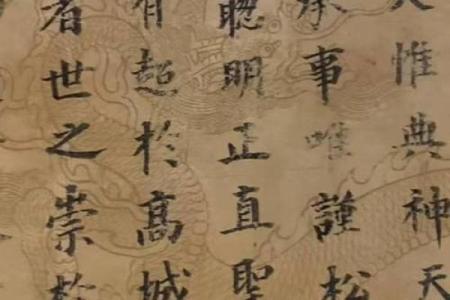 惟典神天
承事唯謹松
聰明正直聖
有超於高城
者世之崇於